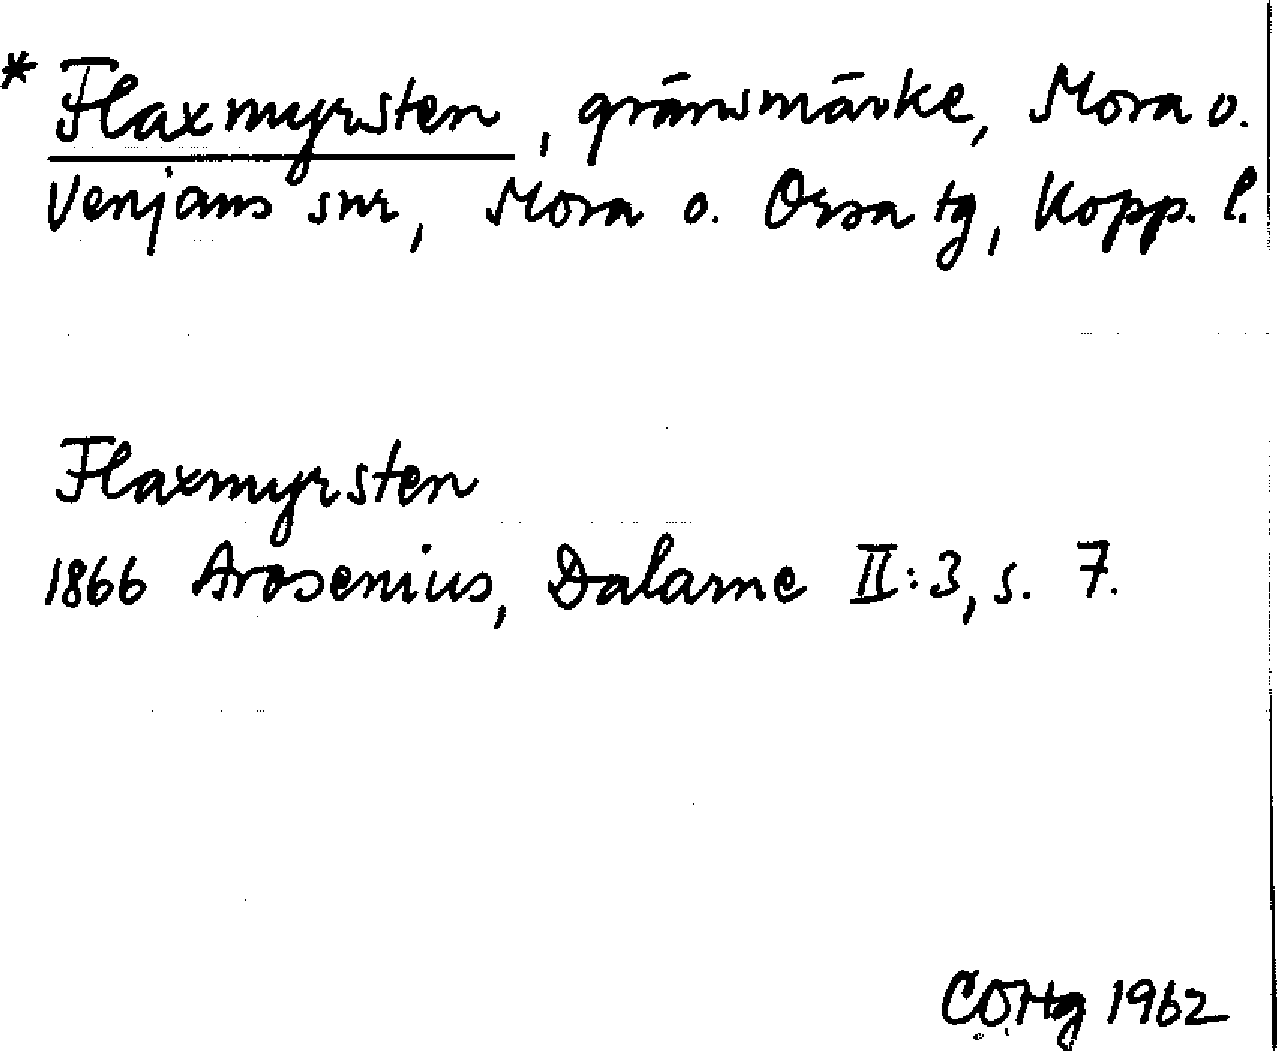 * Flaxmyrsten, gränsmärke, Mora o.
Venjans snr, Mora o. Orsa tg, Kopp. l.
Flaxmyrsten
1866 Arosenius, Dalarne II:3, s. 7.
COHg 1962